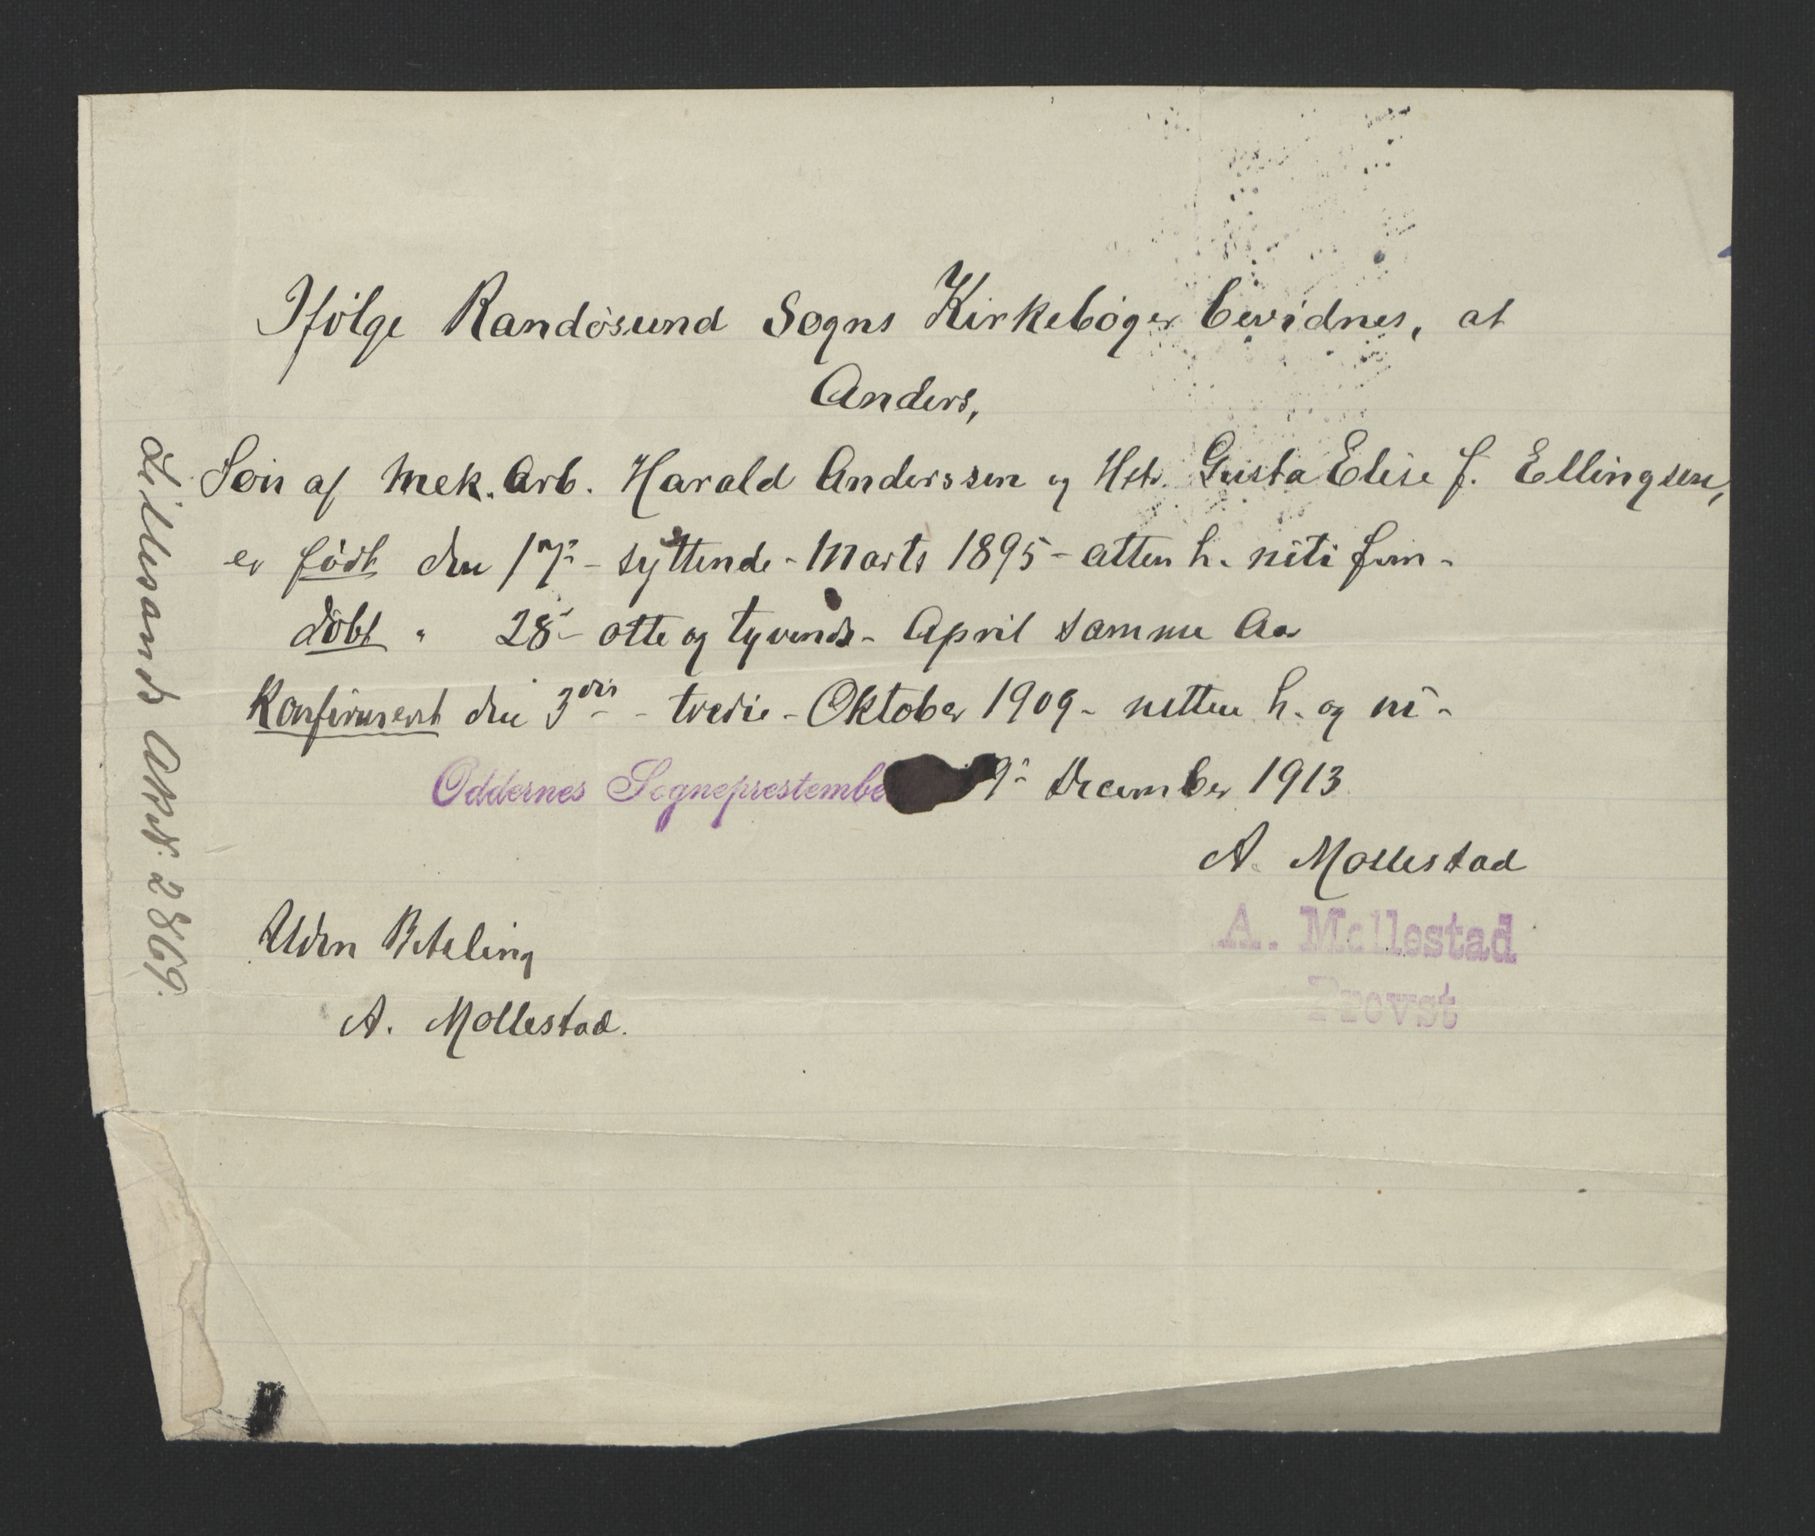 Ifölge Randösund Sogns Kirkebøger bevidnes, at
Anders,
Søn af Mek. Arb. Harald Anderssen og Hstr. Gusta Elise f. Ellingsen,
er født den 17de - syttende - Marts 1895 - atten h. niti fem -
döbt " 28 - otte og tyvende - April samme Aar
Konfirmert den 3die - tredie - Oktober 1909 - nitten h. og ni -
Oddernes Sogneprestembe 9 December 1913
A. Mollestad
A. Mollestad
Provst
Uden Betaling
A. Mollestad.
Lillesands Akr. 2869.